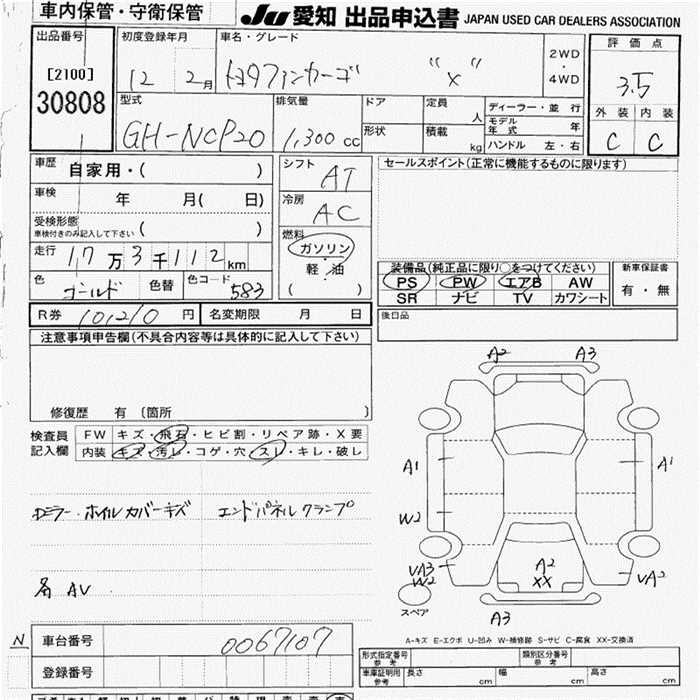 車内保管・守衛保管
JU 愛知 出品申込書 JAPAN USED CAR DEALERS ASSOCIATION
出品番号
[2100]
30808
初度登録年月
12 2月
車名・グレード
トヨタファンカーゴ "X"
2WD
・
4WD
評価点
3.5
外装 内装
C C
型式
GH-NCP20
排気量
1,300 cc
ドア
形状
定員 人
積載 kg
ディーラー・並行
モデル年式 年
ハンドル 左・右
車歴 自家用・( )
車検 年 月( 日)
受検形態
車検付きのみ記入して下さい ( )
走行 17万3千112km
色 ゴールド 色替 色コード 583
シフト AT
冷房 AC
燃料
ガソリン
軽・油
( )
セールスポイント(正常に機能するものに限ります)
装備品(純正品に限り○をつけてください)
PS PW エアB AW
SR ナビ TV カワシート
新車保証書
有・無
後日品
R券 10,210 円 名変期限 月 日
注意事項申告欄(不具合内容等は具体的に記入して下さい)
修復歴 有 〔箇所 〕
検査員
記入欄
FW キズ・飛石・ヒビ割・リペア跡・X要
内装 キズ・汚レ・コゲ・穴・スレ・キレ・破レ
ホイルカバーキズ エンドパネルクランプ
AV
A2 A3
A1 A1
W2
VA3
W2
A2
XX
VA2
スペア
A3
A-キズ E-エクボ U-凹み W-補修跡 S-サビ C-腐食 XX-交換済
N
車台番号 0067107
登録番号
形式指定番号
参考
類別区分番号
参考
車庫証明用
参考
長さ cm 幅 cm 高さ cm